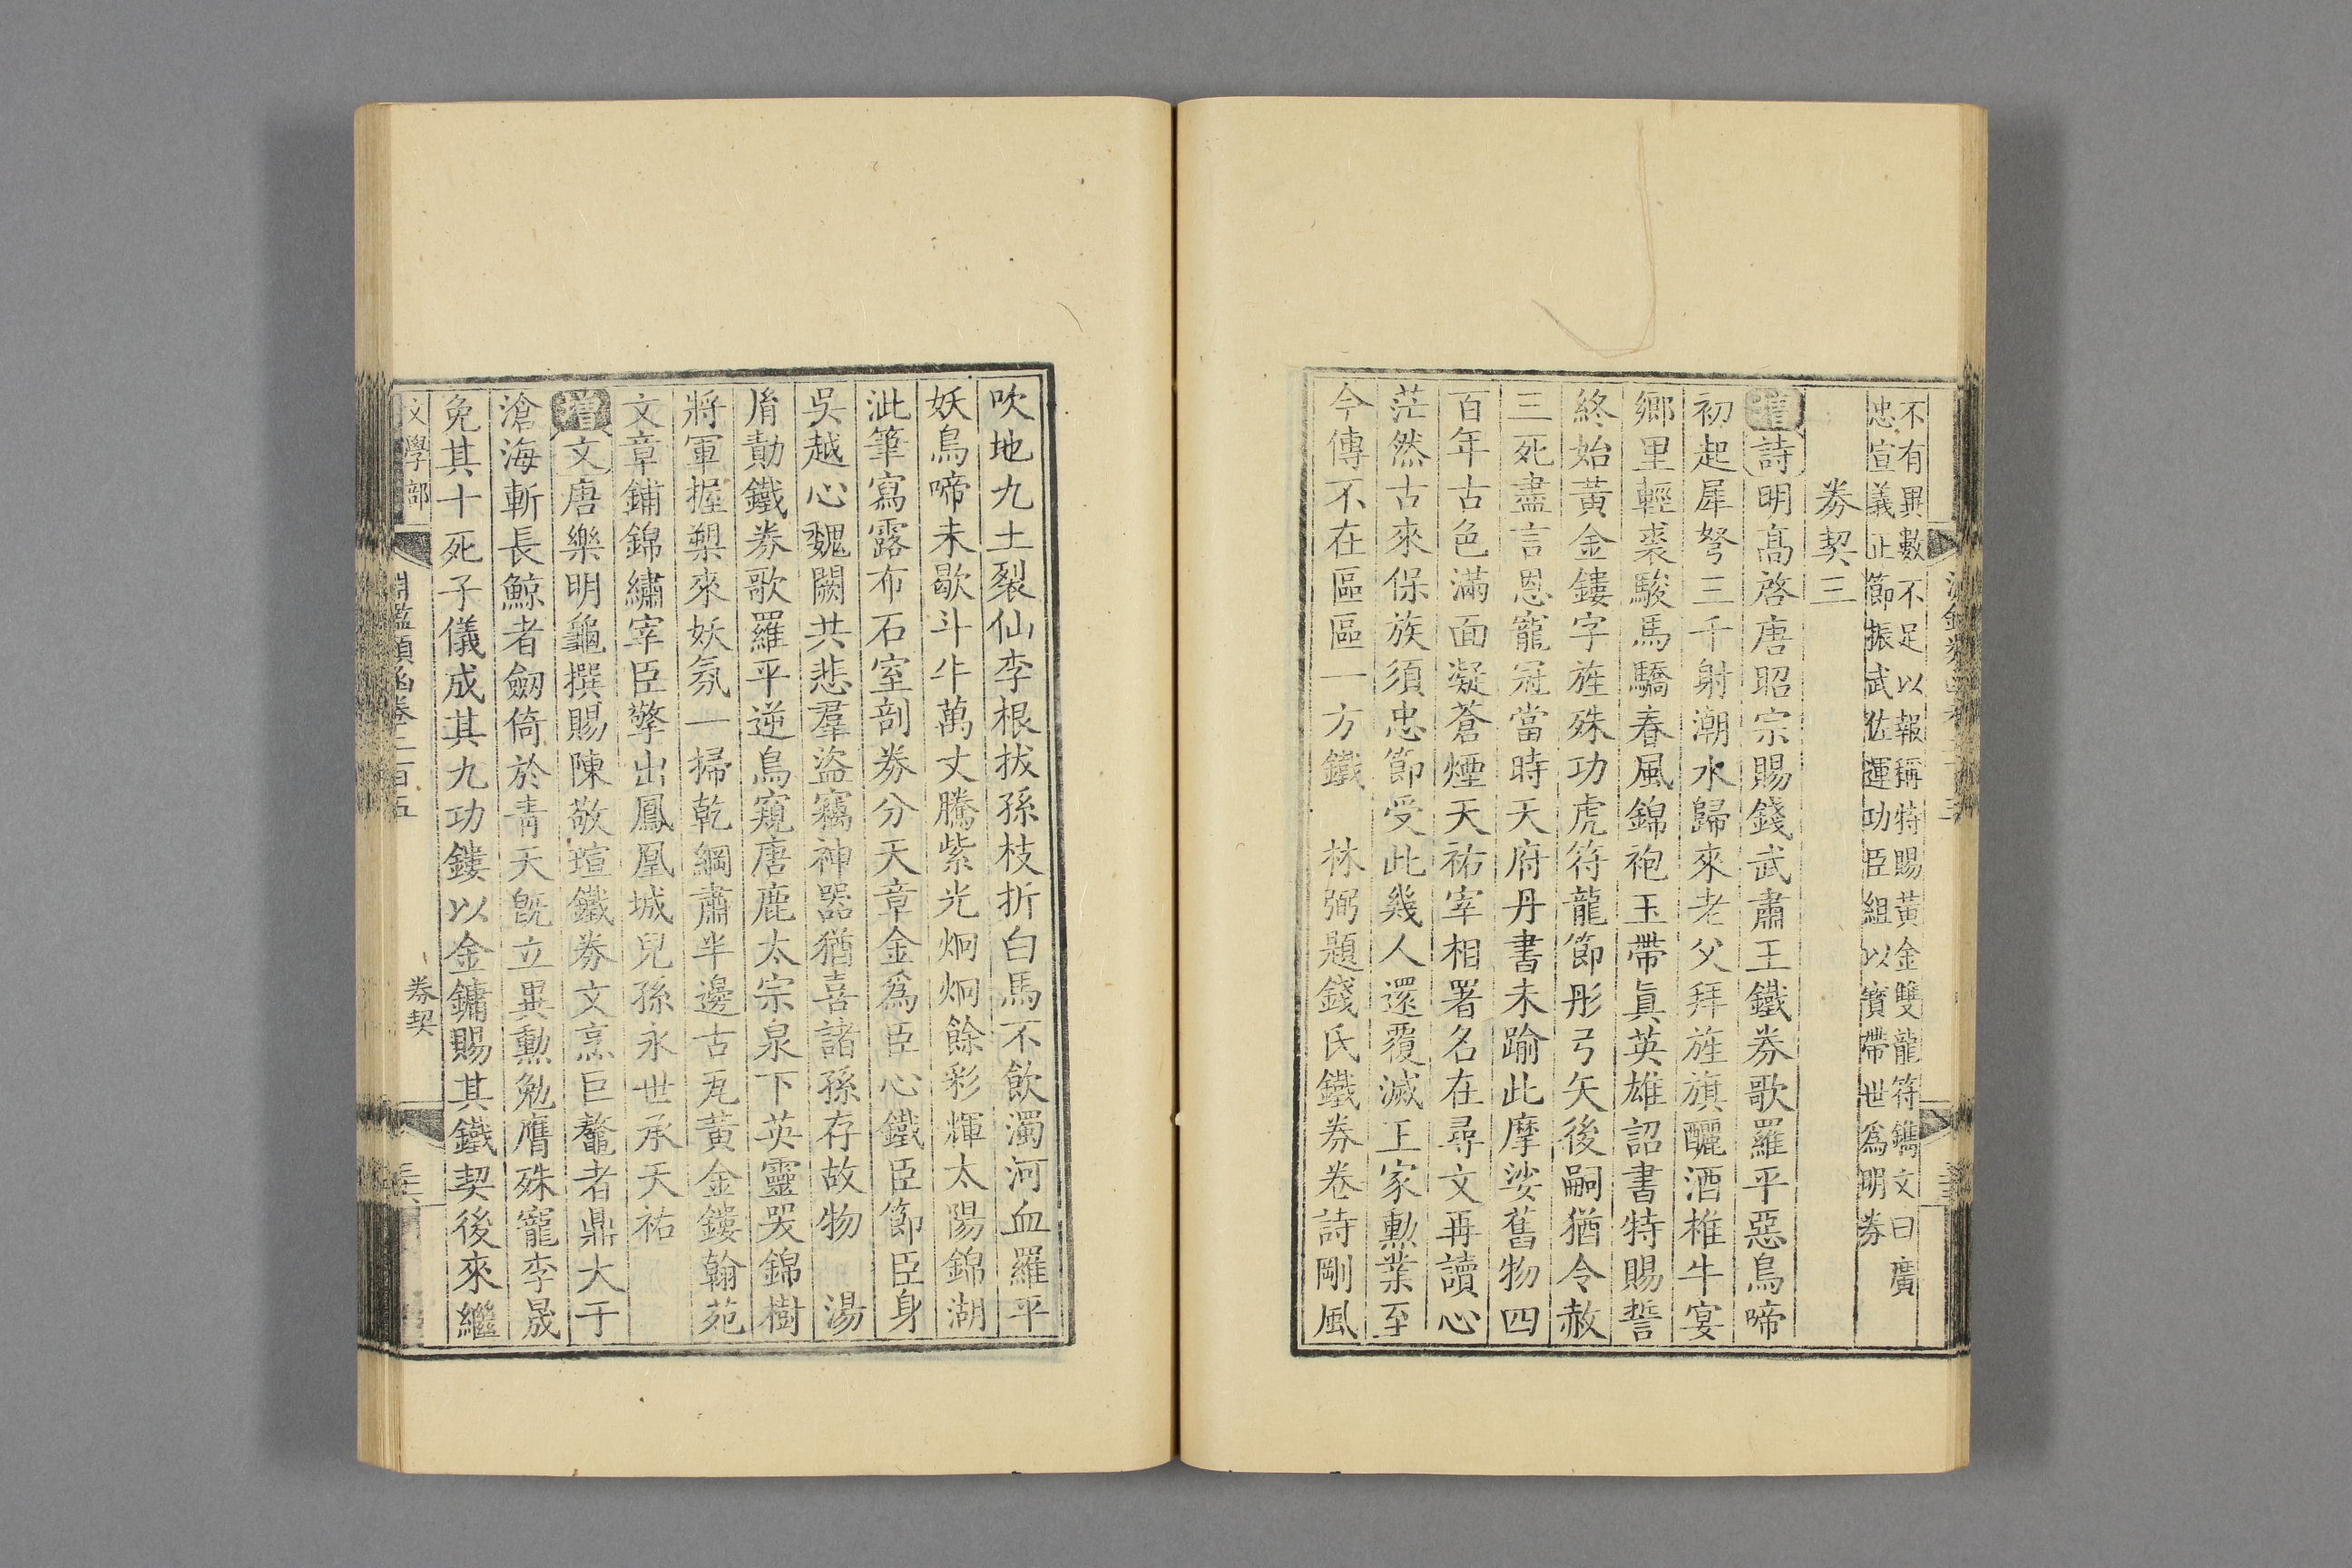 不有異數不足以報稱特賜黃金雙龍符鐫文曰廣
忠宣義正節振武佐運功臣組以寶帶世為明券
券契三
增詩明高啓唐昭宗賜錢武肅王鐵券歌羅平惡鳥啼
初起犀弩三千射潮水歸來老父拜旌旗釃酒椎牛宴
鄉里輕裘駿馬驕春風錦袍玉帶眞英雄詔書特賜誓
終始黃金鏤字旌殊功虎符龍節彤弓矢後嗣猶令赦
三死盡言恩寵冠當時天府丹書未踰此摩挲舊物四
百年古色滿面凝蒼煙天祐宰相署名在尋文再讀心
茫然古來保族須忠節受此幾人還覆滅王家勲業至
今傳不在區區一方鐵　林弼題錢氏鐵券卷詩剛風
吹地九土裂仙李根拔孫枝折白馬不飲濁河血羅平
妖鳥啼未歇斗牛萬丈騰紫光炯炯餘彩輝太陽錦湖
泚筆寫露布石室剖券分天章金爲臣心鐵臣節臣身
吳越心魏闕共悲羣盜竊神器猶喜諸孫存故物　湯
胤勣鐵券歌羅平逆鳥窺唐鹿太宗泉下英靈哭錦樹
將軍握槊來妖氛一掃乾綱肅半邊古瓦黃金鏤翰苑
文章鋪錦繡宰臣擎出鳳凰城兒孫永世承天祐
增文唐樂明龜撰賜陳敬瑄鐵券文烹巨鼇者鼎大于
滄海斬長鯨者劒倚於靑天旣立異勲勉膺殊寵李晟
免其十死子儀成其九功鏤以金鏞賜其鐵契後來繼
文學部
淵鑑類函卷二百五
券契